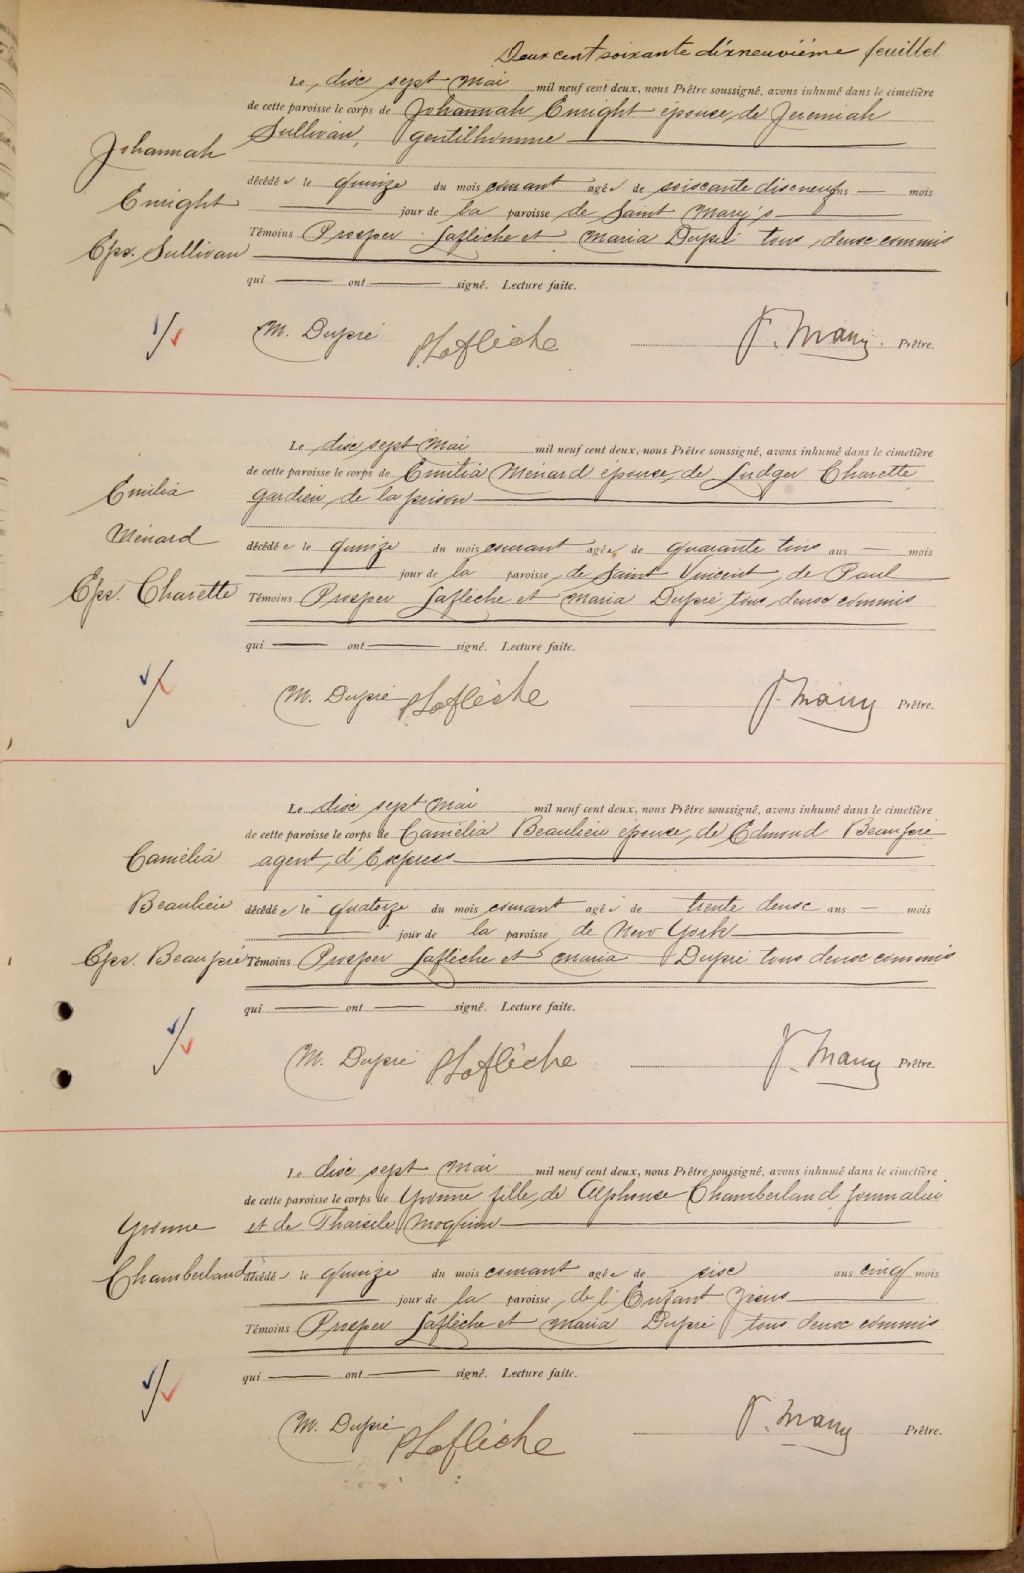 Deux cent soixante dixneuvième feuillet
Le disc sept Mai mil neuf cent deux, nous Prêtre soussigné, avons inhumé dans le cimetière
de cette paroisse le corps de Johannah Enright épouse de Jeremiah
Sullivan, gentilhomme
Johannah
Enright
Eps. Sullivan
décédée le quinze du mois courant agée de soiscante discneuf ans — mois
jour de la paroisse de Saint Mary's
Témoins Prosper Laflèche et Maria Dupré tous deusc commis
qui ont signé. Lecture faite.
M. Dupré PLaflèche Prêtre.
Le disc sept Mai mil neuf cent deux, nous Prêtre soussigné, avons inhumé dans le cimetière
de cette paroisse le corps de Emilia Ménard épouse de Ludger Charette
gardien de la prison
Emilia
Ménard
Eps. Charette
décédée le quinze du mois courant agée de quarante trois ans — mois
jour de la paroisse de Saint Vincent de Paul
Témoins Prosper Laflèche et Maria Dupré tous deusc commis
qui ont signé. Lecture faite.
M. Dupré PLaflèche Prêtre.
Le disc sept Mai mil neuf cent deux, nous Prêtre soussigné, avons inhumé dans le cimetière
de cette paroisse le corps de Camélia Beaulieu épouse de Edmond Beaupré
agent d'Express
Camélia
Beaulieu
Eps. Beaupré
décédée le quatorze du mois courant agé de trente deusc ans — mois
jour de la paroisse de New York
Témoins Prosper Laflèche et Maria Dupré tous deusc commis
qui ont signé. Lecture faite.
M. Dupré PLaflèche Prêtre.
Le disc sept Mai mil neuf cent deux, nous Prêtre soussigné, avons inhumé dans le cimetière
de cette paroisse le corps de Yvonne fille de Alphonse Chamberland journalier
et de Tharsile
Yvonne
Chamberland
décédée le quinze du mois courant agée de sisc ans cinq mois
jour de la paroisse de l'Enfant Jésus
Témoins Prosper Laflèche et Maria Dupré tous deusc commis
qui ont signé. Lecture faite.
M. Dupré PLaflèche Prêtre.